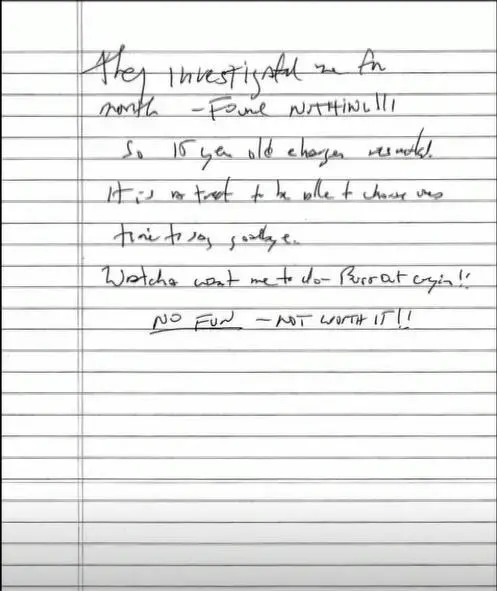 They investigated me for
month – Found NOTHING!!!
So 15 year old charges resulted.
It is a treat to be able to choose
time to say goodbye.
Watcha want me to do – Burst out cryin!!
NO FUN – NOT WORTH IT!!